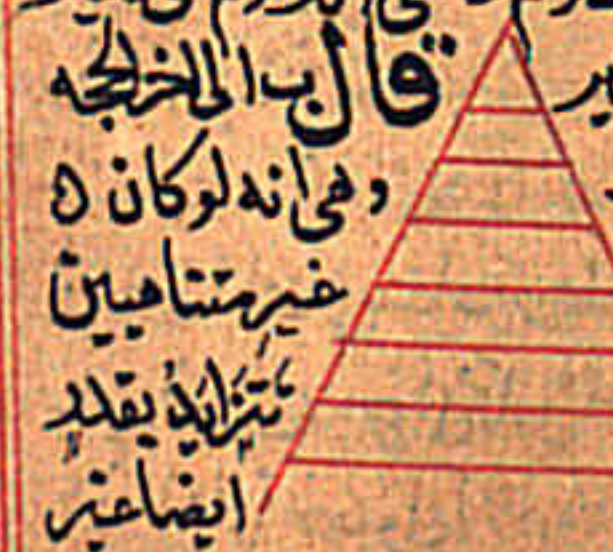 قال ب الى اخر الحجه
وهى انه لو كان ه
غير متناهيين
تتزايد بقدر
ايضا غير